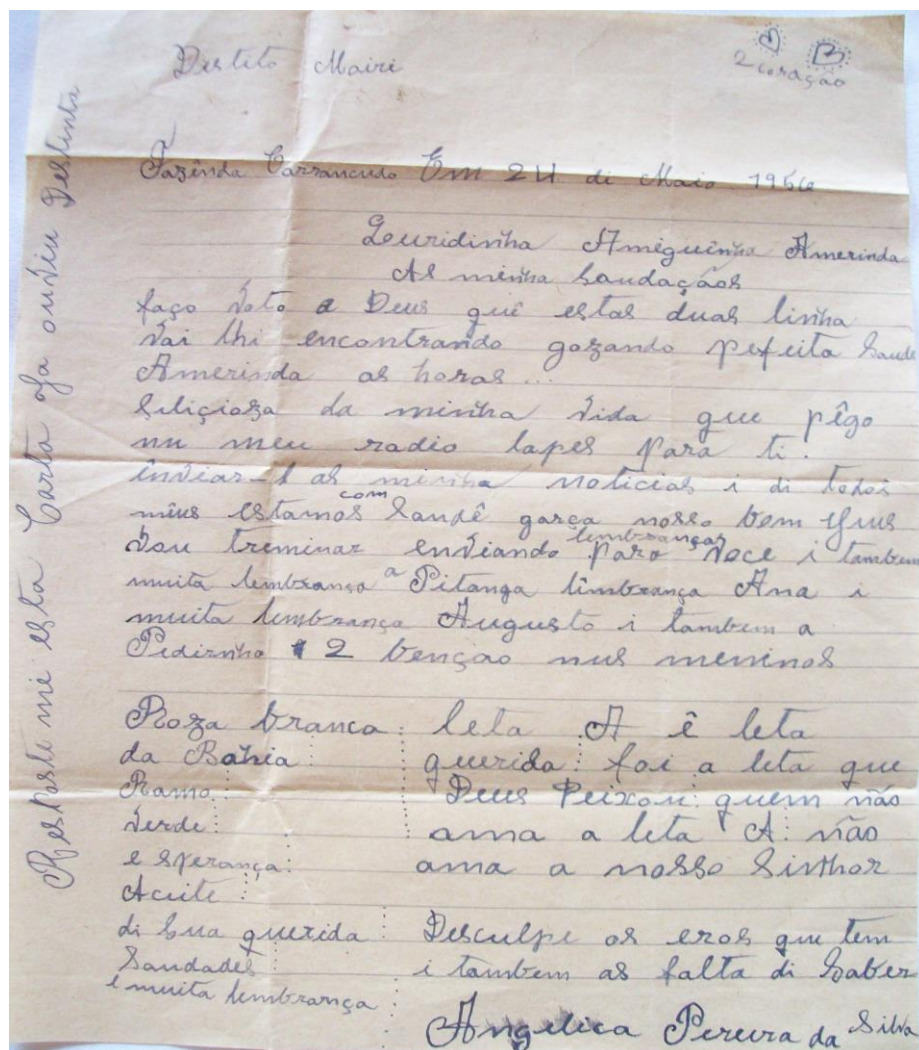 Distito Mairi
2 coração
Fazênda Carrancudo Em 24 di Maio 1956
Queridinha Amiguinha Amerinda
As minha Saudaçãos
faço Voto a Deus quê estas duas linha
Vai lhi encontrando gozando pefeita Saude
Amerinda as horas...
Siliçioza da minha Vida que pêgo
nu meu radio lapes Para ti.
inviar-t as minha noticias i di todos
mêus estamos com Saudê garça nosso bom Yius
Vou treminar enviando lembranças Para Voce i tambem
muita lembrança a Pitanga limbrança Ana i
muita lembrança Augusto i tambem a
Pedirnha 2 bençao nus meninos
Roza branca
da Bahia
Ramo
Verde
e sperança
Aceite
di Sua querida
Saudades
e muita lembrança
leta A ê leta
querida: foi a leta que
Deus Peixou: quem não
ama a leta A: não
ama a nosso Sinhor
Desculpe os eros que tem
i tambem as falta di Saber
Angelica Pereira da Silva
Resposte mi esta Carta Ja ouviu Destinta